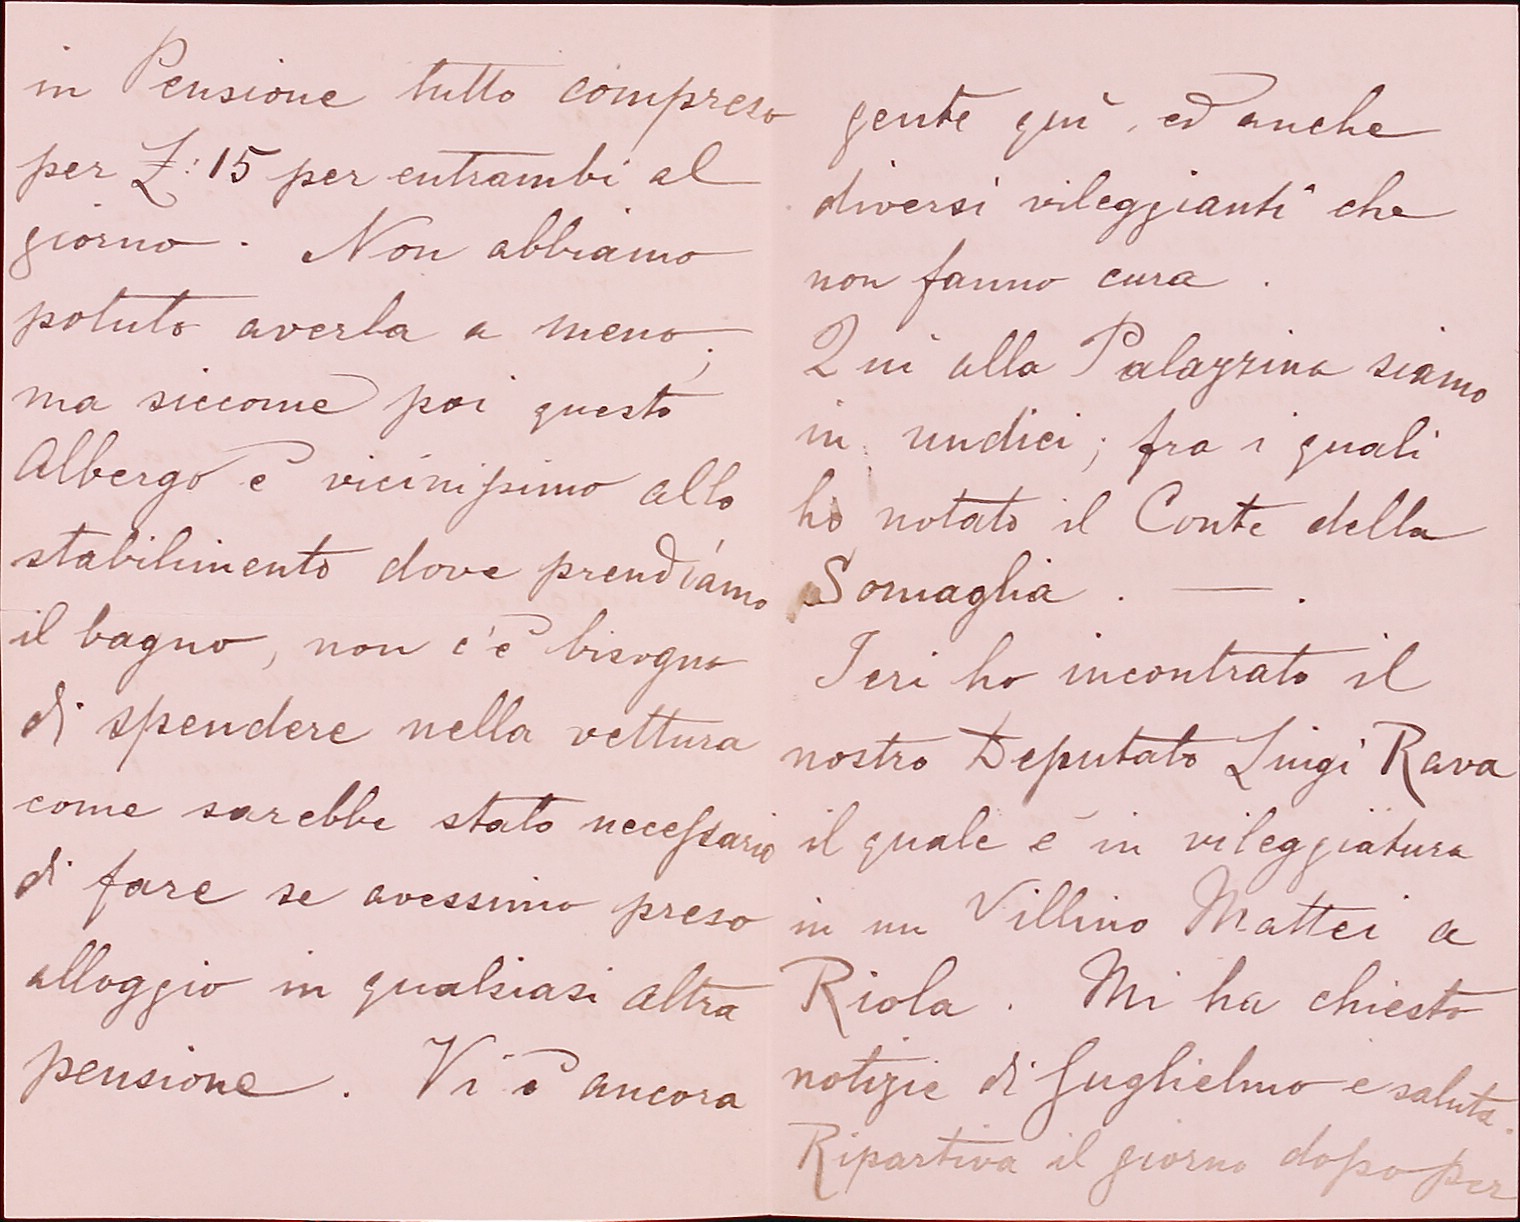 in Pensione tutto compreso
per £: 15 per entrambi al
giorno. Non abbiamo
potuto averla a meno;
ma siccome poi questo
Albergo è vicinissimo allo
stabilimento dove prendiamo
il bagno, non c'è bisogno
di spendere nella vettura
come sarebbe stato necessario
di fare se avessimo preso
alloggio in qualsiasi altra
pensione. Vi è ancora
gente quì, ed anche
diversi vileggianti che
non fanno cura.
Qui alla Palazzina siamo
in undici; fra i quali
ho notato il Conte della
Somaglia. — .
Ieri ho incontrato il
nostro Deputato Luigi Rava
il quale è in vileggiatura
in un Villino Mattei a
Riola. Mi ha chiesto
notizie di Guglielmo e saluta.
Ripartiva il giorno dopo per